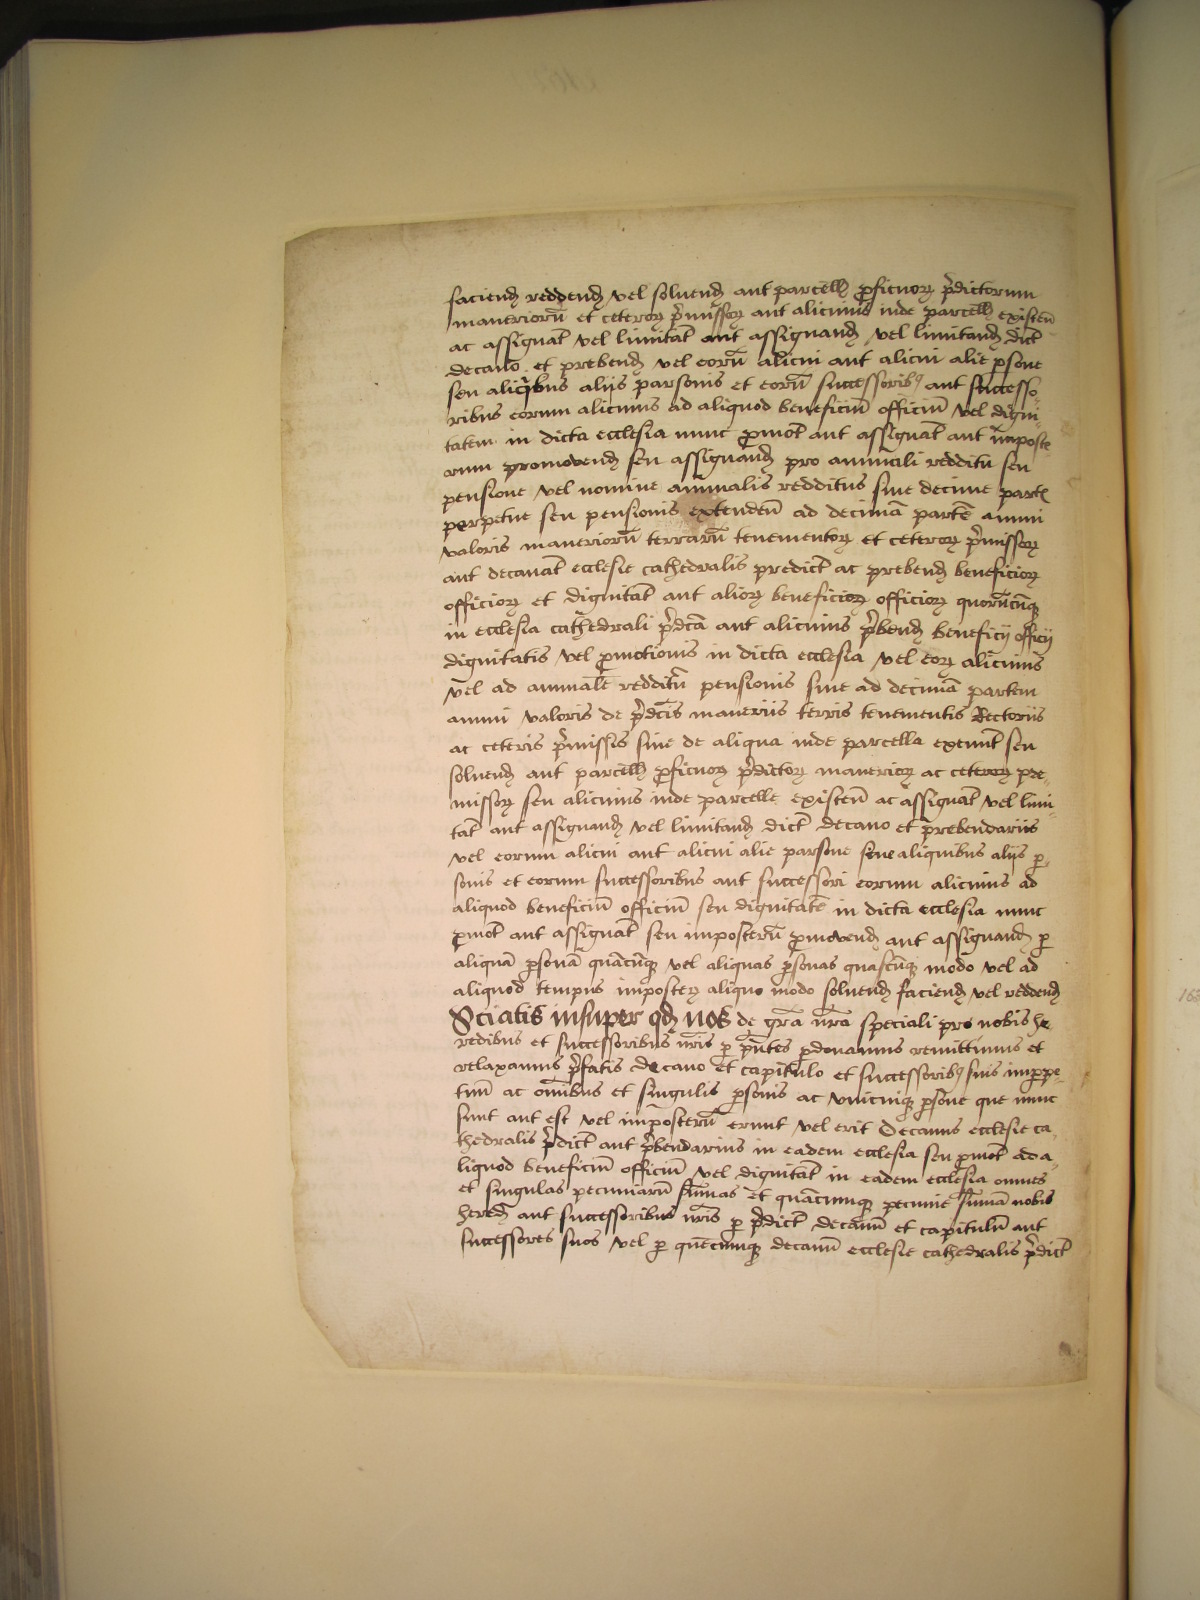 faciend reddend vel soluend aut parcell proficuor predictorum
maneriorū et ceteror premissor aut alicuius inde parcell existen
ac assignat vel limitat aut assignand vel limitand dict
decano et prebend vel eorū alicui aut alicui alie persone
seu aliquibus alijs personis et eorū successorib; aut successo-
ribus eorum alicuius ad aliquod beneficiū officiū vel digni-
tatem in dicta ecclesia nunc promot aut assignat aut imposte-
rum promovend seu assignand pro annuali redditu seu
pensione vel nomine annualis redditus siue decime partis
perpetue seu pensionis extenden ad decimā partē annui
valoris maneriorū terrarū tenementor et ceteror premissor
aut decanat ecclesie cathedralis predict ac prebend beneficior
officior et dignitat aut alior beneficior officior quorūcūq;
in ecclesia cathedrali predcā aut alicuius prebend beneficij officij
dignitatis vel promotionis in dicta ecclesia vel eor alicuius
vel ad annualē redditū pensionis siue ad decimā partem
annui valoris de predcis manerijs terris tenementis Rectorijs
ac ceteris premissis siue de aliqua inde parcella exeunt seu
soluend aut parcell proficuor predictor manerior ac ceteror pre-
missor seu alicuius inde parcelle existen ac assignat vel limi-
tat aut assignand vel limitand dict decano et prebendarijs
vel eorum alicui aut alicui alie persone siue aliquibus alijs per-
sonis et eorum successoribus aut successori eorum alicuius ad
aliquod beneficiū officiū seu dignitatē in dicta ecclesia nunc
promot aut assignat seu imposterū promovend aut assignand per
aliquā personā quācūq; vel aliquas personas quascūq; modo vel ad
aliquod tempus imposter aliquo modo soluend faciend vel reddend
Sciatis insuper qd nos de grā nrā speciali pro nobis he-
redibus et successoribus nris per pntes perdonamus remittimus et
relaxamus prefatis decano et capitulo et successorib; suis imperpe-
tuū ac omibus et singulis personis ac vnicuiq; persone que nunc
sunt aut est vel imposterū erunt vel erit Decanus ecclesie ca-
thedralis predict aut prebendarius in eadem ecclesia seu promot ad a-
liquod beneficiū officiū vel dignitat in eadem ecclesia omnes
et singulas pecuniarū summas et quācumq; pecunie summā nobis
hered aut successoribus nris per predict decanū et capitulū aut
successores suos vel per quēcumq; decanū ecclesie cathedralis predict